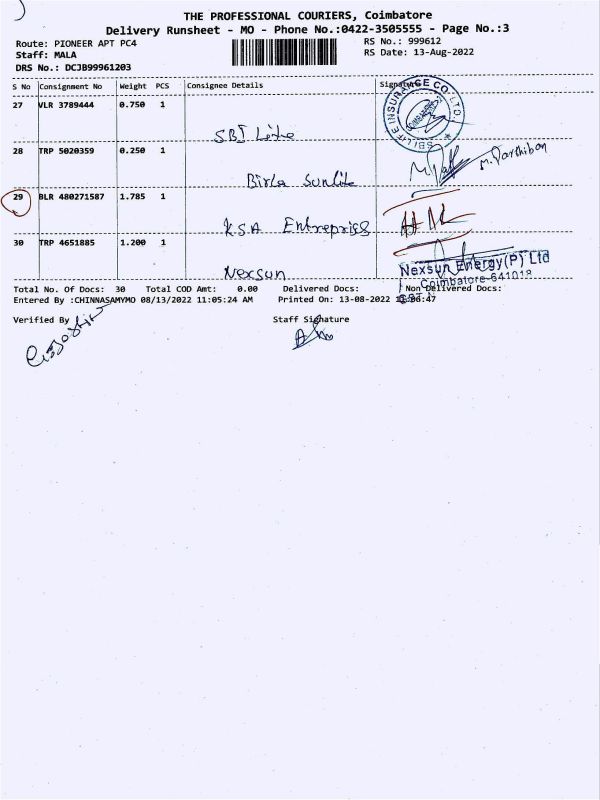 THE PROFESSIONAL COURIERS, Coimbatore
Delivery Runsheet - MO - Phone No.:0422-3505555 - Page No.:3
Route: PIONEER APT PC4 RS No.: 999612
Staff: MALA RS Date: 13-Aug-2022
DRS No.: DCJB99961203
S No Consignment No Weight PCS Consignee Details Signature
27 VLR 3789444 0.750 1
SBI LIFE INSURANCE CO. LTD.
SBI Life
28 TRP 5020359 0.250 1
Birla Sunlife M. Parthiban
29 BLR 480271587 1.785 1
KSA Entreprises
30 TRP 4651885 1.200 1
Nexsun Nexsun Energy(P) Ltd
Coimbatore-641018
Total No. Of Docs: 30 Total COD Amt: 0.00 Delivered Docs: Non Delivered Docs:
Entered By :CHINNASAMYMO 08/13/2022 11:05:24 AM Printed On: 13-08-2022
Verified By Staff Signature